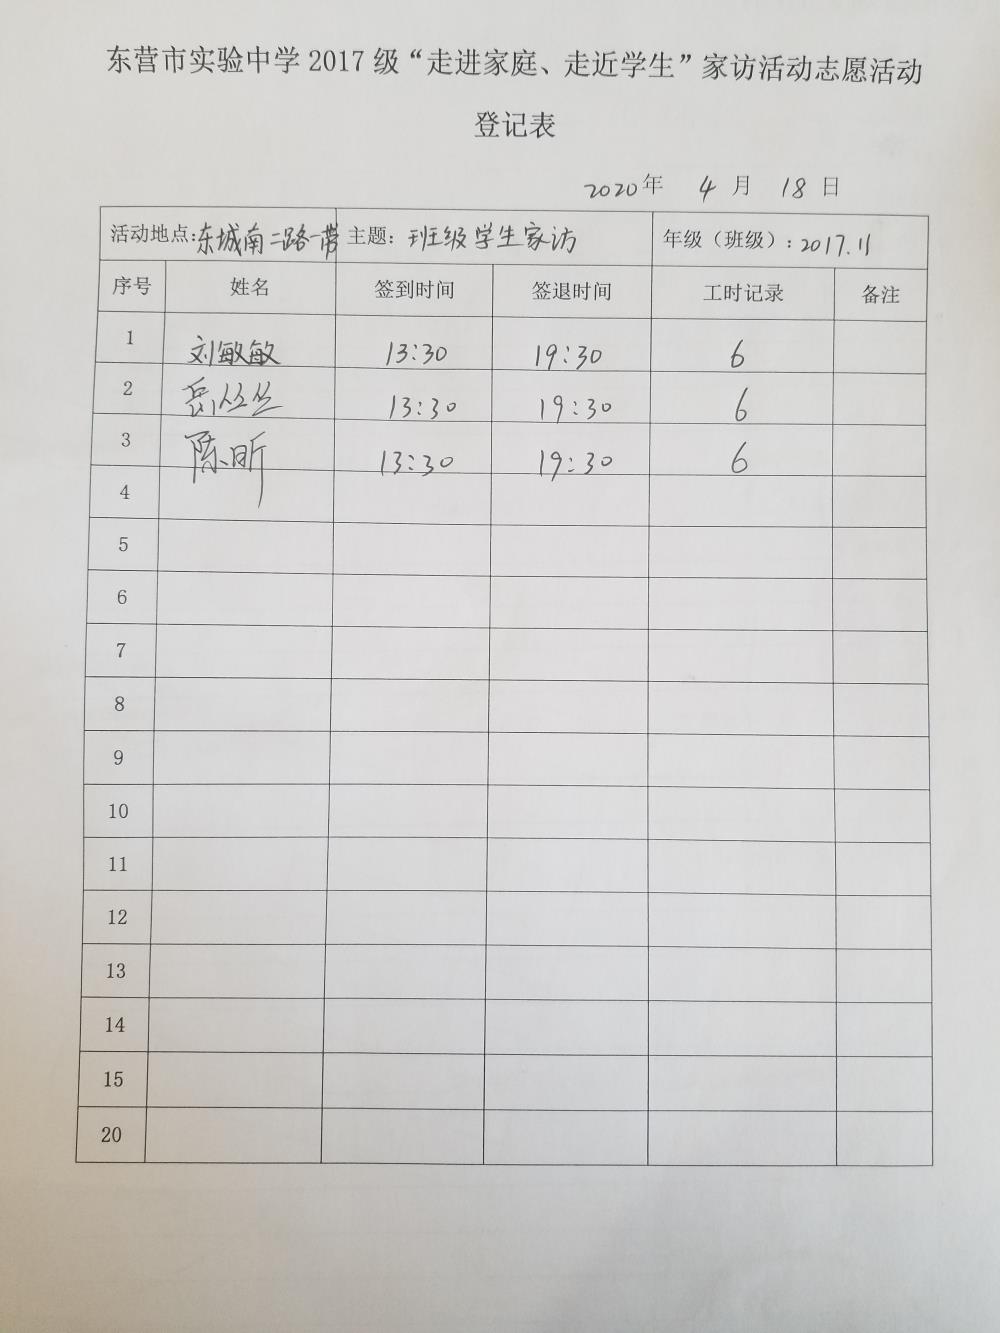 东营市实验中学 2017 级“走进家庭、走近学生”家访活动志愿活动
登记表
2020年 4 月 18 日
活动地点:东城南二路一带 主题：班级学生家访 年级（班级）：2017.11
序号 姓名 签到时间 签退时间 工时记录 备注
1 刘敏敏 13:30 19:30 6
2 岳丛丛 13:30 19:30 6
3 陈昕 13:30 19:30 6
4
5
6
7
8
9
10
11
12
13
14
15
20